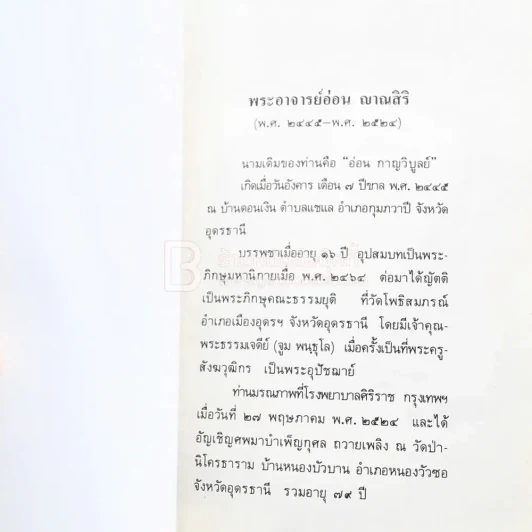 พระอาจารย์อ่อน ญาณสิริ
(พ.ศ. ๒๔๔๕–พ.ศ. ๒๕๒๔)
นามเดิมของท่านคือ "อ่อน กาญวิบูลย์"
เกิดเมื่อวันอังคาร เดือน ๗ ปีขาล พ.ศ. ๒๔๔๕
ณ บ้านดอนเงิน ตำบลแชแล อำเภอกุมภวาปี จังหวัด
อุดรธานี
บรรพชาเมื่ออายุ ๑๖ ปี อุปสมบทเป็นพระ-
ภิกษุมหานิกายเมื่อ พ.ศ. ๒๔๖๔ ต่อมาได้ญัตติ
เป็นพระภิกษุคณะธรรมยุติ ที่วัดโพธิสมภรณ์
อำเภอเมืองอุดรฯ จังหวัดอุดรธานี โดยมีเจ้าคุณ-
พระธรรมเจดีย์ (จูม พนฺธุโล) เมื่อครั้งเป็นที่พระครู-
สังฆวุฒิกร เป็นพระอุปัชฌาย์
ท่านมรณภาพที่โรงพยาบาลศิริราช กรุงเทพฯ
เมื่อวันที่ ๒๗ พฤษภาคม พ.ศ. ๒๕๒๔ และได้
อัญเชิญศพมาบำเพ็ญกุศล ถวายเพลิง ณ วัดป่า-
นิโครธาราม บ้านหนองบัวบาน อำเภอหนองวัวซอ
จังหวัดอุดรธานี รวมอายุ ๗๙ ปี